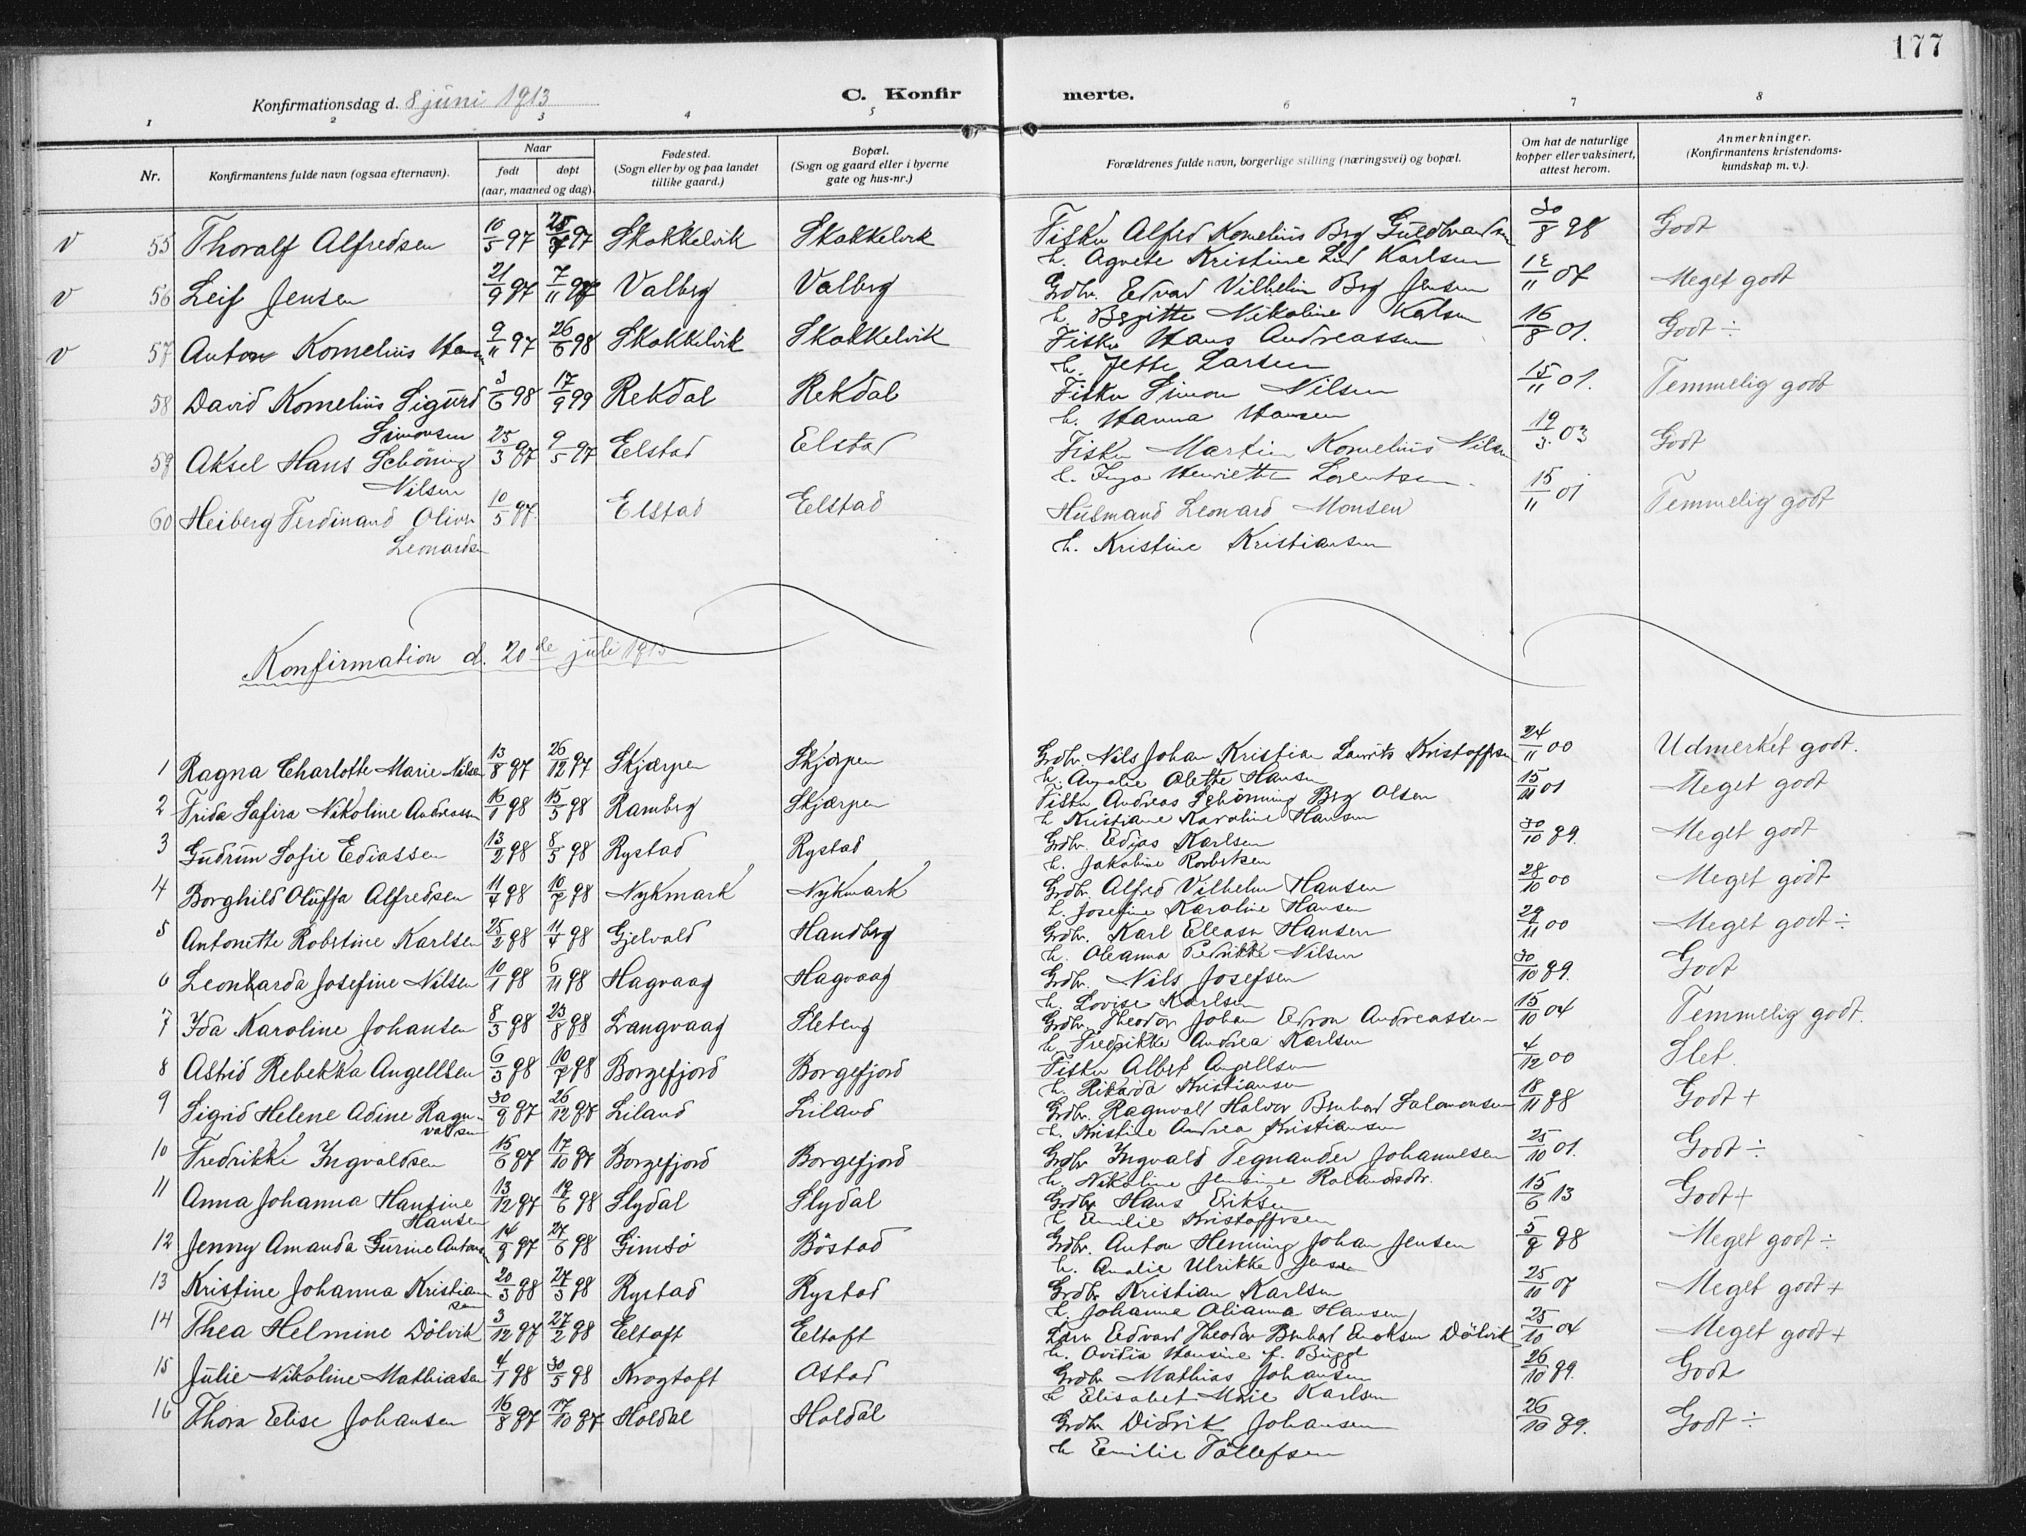 177
Konfirmationsdag d. 8 juni 1913
C. Konfir merte.
1 2 3 4 5 6 7 8
Nr.
Konfirmantens fulde navn (ogsaa efternavn).
Naar
født
døpt
(aar, maaned og dag).
Fødested.
(Sogn eller by og paa landet
tillike gaard.)
Bopæl.
(Sogn og gaard eller i byerne
gate og hus-nr.)
Forældrenes fulde navn, borgerlige stilling (næringsvei) og bopæl.
Om hat de naturlige
kopper eller vaksinert,
attest herom.
Anmerkninger.
(Konfirmantens kristendoms-
kundskap m. v.).
v 55 Thoralf Alfredsen 10/5 97 97 Skokkelvik Skokkelvik Fisker Alfred Kornelius Brg Guldbrandsen 30/8 98 Godt
h. Agnete Kristine Karlsen
v 56 Leif Jensen 21/9 97 7/11 97 Valberg Valberg Grdbr. Edvard Vilhelm Brg Jensen 12/11 07 Meget godt
h. Bergitte Nikoline
v 57 Anton Kornelius Hansen 9/11 97 26/6 98 Skokkelvik Skokkelvik Fisker Hans Andreassen 16/8 01. Godt ÷
h. Jette Larsen
58 David Kornelius Sigurd 3/6 98 17/9 99 Rekdal Rekdal Fisker Simon Nilsen 15/11 01. Temmelig godt
Simonsen h. Hanna Hansen
59 Aksel Hans Schöning 25/3 97 9/5 97 Elstad Elstad Fisker Martin Kornelius Nilsen 19/3 03 Godt
Nilsen h. Inga Henriette Lorentsen
60 Heiberg Ferdinand Oliver 10/5 97. Elstad Elstad Husmand Leonard Monsen 15/11 01 Temmelig godt
Leonardsen h. Kristine Kristiansen
Konfirmation d. 20de juli 1913
1 Ragna Charlotte Marie Nilsen 13/8 97 26/12 97 Skjærpen Skjærpen Grdbr. Nils Johan Kristian Laurits Kristoffersen 24/11 00 Udmerket godt.
h. Amalie Olette Hansen
2 Frida Safira Nikoline Andreassen 16/1 98 15/5 98 Ramberg Skjærpen Fisker Andreas Schönning Brg Olsen 15/11 01 Meget godt
h. Kristiane Karoline Hansen
3 Gudrun Sofie Ediassen 13/2 98 8/5 98 Rystad Rystad Grdbr. Edias Karlsen 30/10 99. Meget godt
h. Jakobine Robertsen
4 Borghild Oluffa Alfredsen 11/4 98 10/7 98 Nykmark Nykmark Grdbr. Alfred Vilhelm Hansen 28/10 00 Meget godt
h. Josefine Karoline Hansen
5 Antonette Robertine Karlsen 25/2 98 11/4 98 Gjelvold Handberg Grdbr. Karl Eleasar Hansen 29/11 00 Meget godt ÷
h. Oleanna Pedrikke Nilsen
6 Leonharda Josefine Nilsen 10/1 98 6/11 98 Hagvaag Hagvaag Grdbr. Nils Josefsen 30/10 99. Godt
h. Lovise Karlsen
7 Ida Karoline Johansen 8/3 98 23/8 98 Langvaag Sleteng Grdbr. Theodor Johan Edvon Andreassen 15/10 04 Temmelig godt.
h. Fredrikke Andrea Karlsen
8 Astrid Rebekka Angellsen 6/3 98 10/7 98 Borgefjord Borgefjord Fisker Albert Angellsen 4/12 00 Slet.
h. Rikarda Kristiansen
9 Sigrid Helene Adine Ragn- 30/9 97 26/12 97 Liland Liland Grdbr. Ragnvald Halvor Bernhard Salomonsen 18/11 98 Godt +
valdsen h. Kristine Andrea Kristiansen
10 Fredrikke Ingvaldsen 15/6 97 17/10 97 Borgefjord Borgefjord Grdbr. Ingvald Tegnander Johannesen 25/10 01. Godt ÷
h. Nikoline Jensine Rolandsdtr.
11 Anna Johanna Hantine 13/12 97 19/6 98 Slydal Slydal Grdbr Hans Eriksen 15/6 13 Godt +
Hansen h Emilie Kristoffersen
12 Jenny Amanda Gurine Antonsen 14/9 97 27/6 98 Gimsö Böstad Grdbr. Anton Henning Johan Jensen 5/9 98 Meget godt ÷
h. Amalie Ulrikke Jensen
13 Kristine Johanna Kristian 20/3 98 27/3 98 Rystad Rystad Grdbr Kristian Karlsen 25/10 07 Meget godt +
sen h. Johanna Olianna Hansen
14 Thea Helmine Dölvik 3/12 97 27/2 98 Eltoft Eltoft Edvard Theodor Bernhard Enoksen Dölvik 25/10 04 Meget godt +
h. Ovidia Hansine f. Bugge
15 Julie Nikoline Mathiasen 4/1 98 30/5 98 Krogtoft Ostad Grdbr Mathias Johansen 26/10 99. Godt
h Elisabet Marie Karlsen
16 Thora Elise Johansen 16/8 97 17/10 97 Holdal Holdal Grdbr Didrik Johansen 26/10 99. Godt ÷
h Emilie Tollefsen